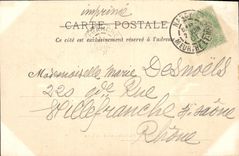 imprimé
CARTE POSTALE
Ce côté est exclusivement réservé à l'adresse
Mademoiselle Marie Desnoëls
220 gde Rue
Villefranche s/ saône
Rhône